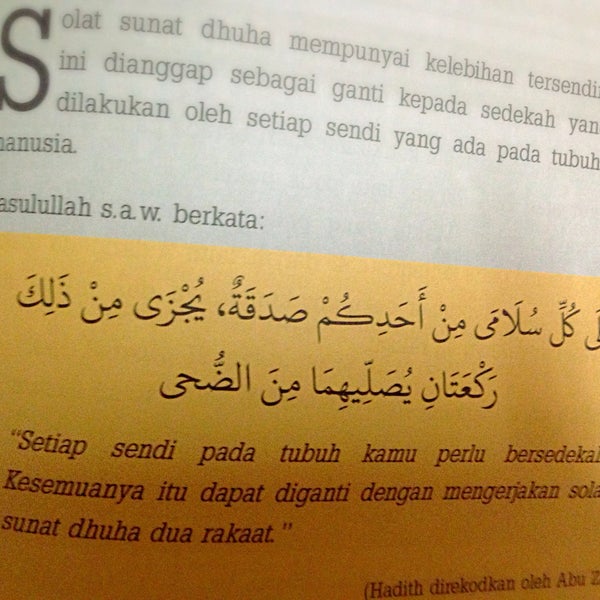 Solat sunat dhuha mempunyai kelebihan tersendir
ini dianggap sebagai ganti kepada sedekah yan
dilakukan oleh setiap sendi yang ada pada tubuh
anusia.
asulullah s.a.w. berkata:
كُلِّ سُلَامَى مِنْ أَحَدِكُمْ صَدَقَةٌ، يُجْزَى مِنْ ذَلِكَ
رَكْعَتَانِ يُصَلِّيهِمَا مِنَ الضُّحَى
"Setiap sendi pada tubuh kamu perlu bersedekah
Kesemuanya itu dapat diganti dengan mengerjakan sola
sunat dhuha dua rakaat."
(Hadith direkodkan oleh Abu Z